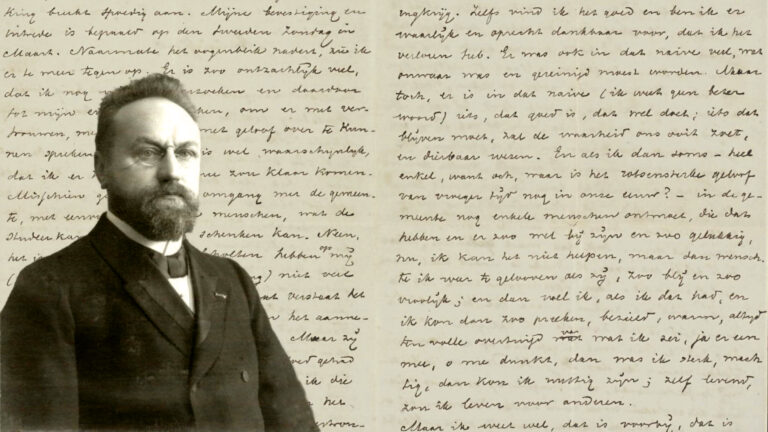 King breekt spoedig aan. Mijne bevestiging en
intrede is bepaald op den tweeden Zondag in
Maart. Naarmate het oogenblik nadert, zie ik
er te meer tegen op. Er is zoo ontzachlijk veel,
dat ik nog zoeken en daardoor
tot mijn ken, om er met ver-
trouwen, me geloof over te kun-
nen spreken is wel waarschijnlijk,
dat ik er zou klaar komen.
Misschien omgang met de gemeen-
te, met eenv menschen, wat de
studeerkam schenken kan. Neen,
het holten hebben op mij
niet veel
at verstaat het
het aanne-
Maar zij
oed gehad
ik die
het
ertron-
engkrijg. Zelfs vind ik het goed en ben ik er
waarlijk en oprecht dankbaar voor, dat ik het
verloren heb. Er was ook in dat naive veel, wat
onwaar was en gereinigd moest worden. Maar
toch, er is in dat naive (ik weet geen beter
woord) iets, dat goed is, dat wel doet; iets dat
blijven moet, zal de waarheid ons ooit zoet,
en dierbaar wezen. En als ik dan soms - heel
enkel, want och, waar is het rotsensterke geloof
van vroeger tijd nog in onze eeuw? - in de ge-
meente nog enkele menschen ontmoet, die dat
hebben en er zoo wel bij zijn en zoo gelukkig,
nu, ik kan het niet helpen, maar dan wensch-
te ik weer te gelooven als zij, zoo blij en zoo
vroolijk; en dan voel ik, als ik dat had, en
ik kon dan zoo preeken, bezield, warm, altijd
ten volle overtuigd van wat ik zei, ja er een
mee, o me dunkt, dan was ik sterk, mach-
tig, dan kon ik nuttig zijn; zelf levend,
zou ik leven voor anderen.
Maar ik weet wel, dat is voorbij, dat is